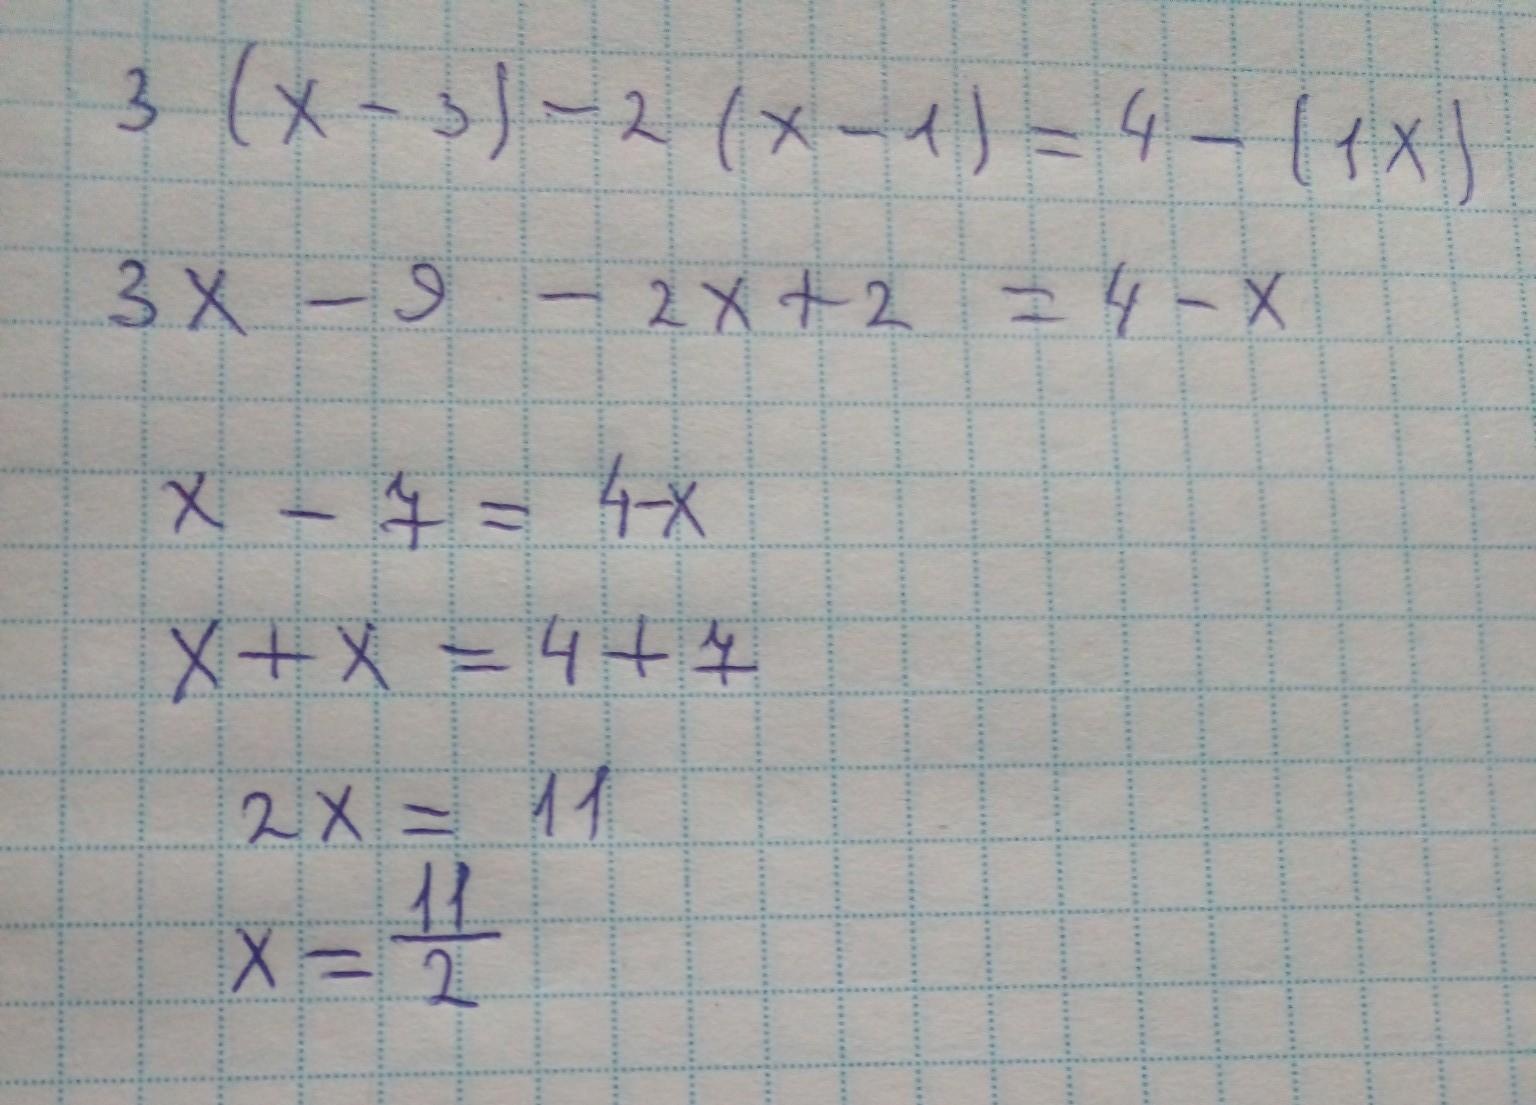 3 (x - 3) - 2 (x - 1) = 4 - (1x)
3x - 9 - 2x + 2 = 4 - x
x - 7 = 4-x
x + x = 4 + 7
2x = 11
x = 11/2